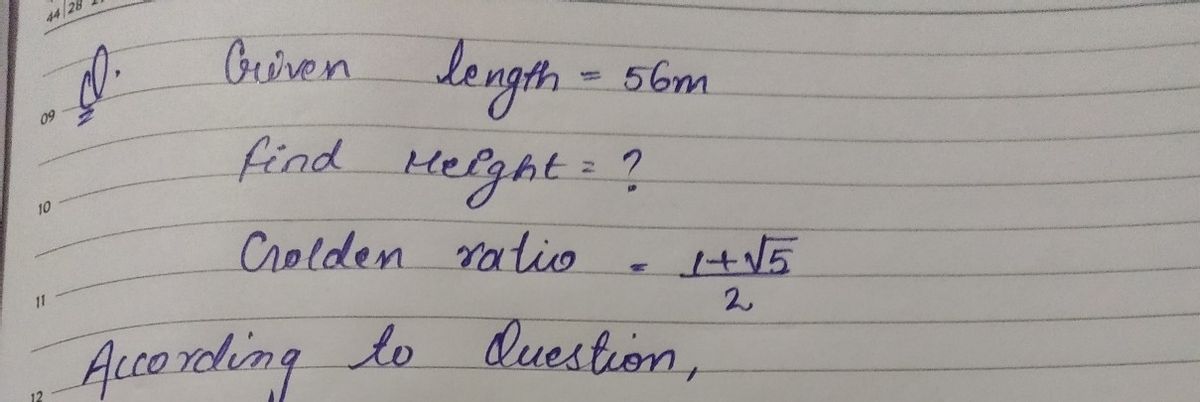 44 28
Q. Given length = 56m
09
find Height = ?
10
Golden ratio = 1+√5
2
11
According to Question,
12